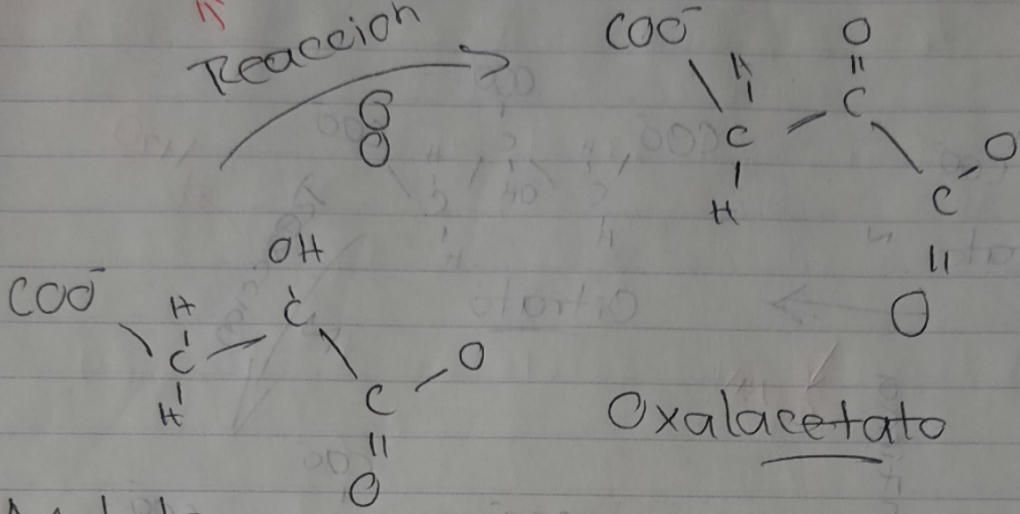 Reaccion
8
COO⁻ H O
C C
H C O
O
OH
COO⁻ H C
C
H C O
O
Oxalacetato